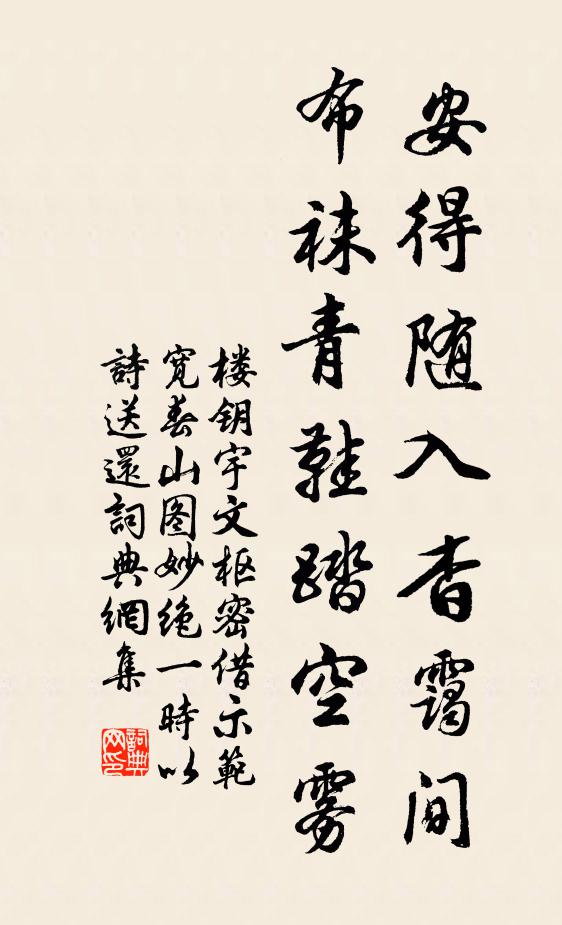 安得随入杳霭间
布袜青鞋踏空雾
楼钥宇文枢密借示範
宽春山图妙绝一時以
詩送還詞典網集
詞典网印